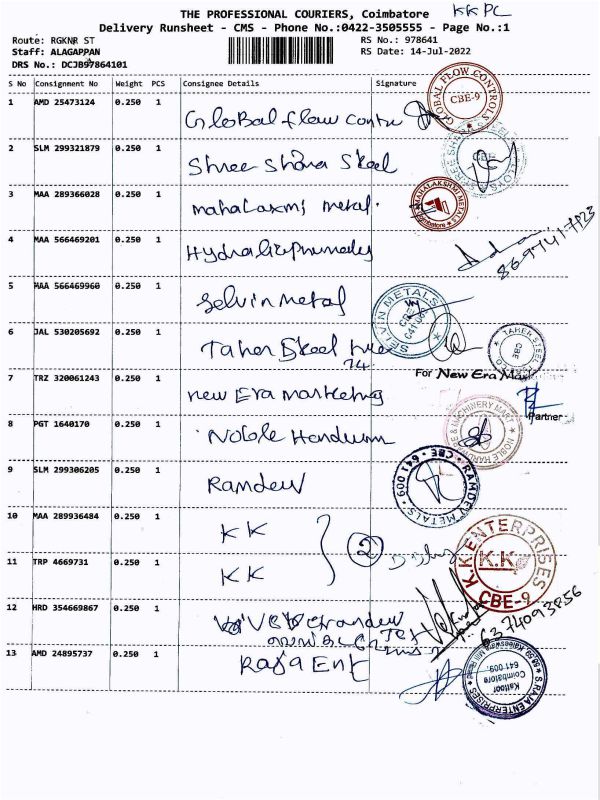 THE PROFESSIONAL COURIERS, Coimbatore
KKPC
Delivery Runsheet - CMS - Phone No.:0422-3505555 - Page No.:1
Route: RGKNR ST
RS No.: 978641
Staff: ALAGAPPAN
RS Date: 14-Jul-2022
DRS No.: DCJB97864101
S No Consignment No Weight PCS Consignee Details Signature
1 AMD 25473124 0.250 1 Global flow contr
GLOBAL FLOW CONTROLS
CBE-9
2 SLM 299321879 0.250 1 Shree Skeel
CBE
3 MAA 289366028 0.250 1 mahalaxmi metal.
MAHALAKSHMI METALS
Coimbatore
4 MAA 566469201 0.250 1
8697417723
5 MAA 566469960 0.250 1 Selvin metal
SELVIN METALS
CBE
6 JAL 530205692 0.250 1 Taher Skeel
TAHER STEEL
CBE
74.
For New Era
7 TRZ 320061243 0.250 1 new Era marketing
Partner
8 PGT 1640170 0.250 1 Noble
NOBLE & MACHINERY MART
9 SLM 299306205 0.250 1 Ramdev
RAMDEV METALS
CBE - 641 009
10 MAA 289936484 0.250 1 KK
2
K.K ENTERPRISES
K.K
CBE-9
11 TRP 4669731 0.250 1 KK
12 HRD 354669867 0.250 1
6374093856
13 AMD 24895737 0.250 1 Raja Ent
S.RAJA ENTERPRISES
Kattoor
Coimbatore
641 009.